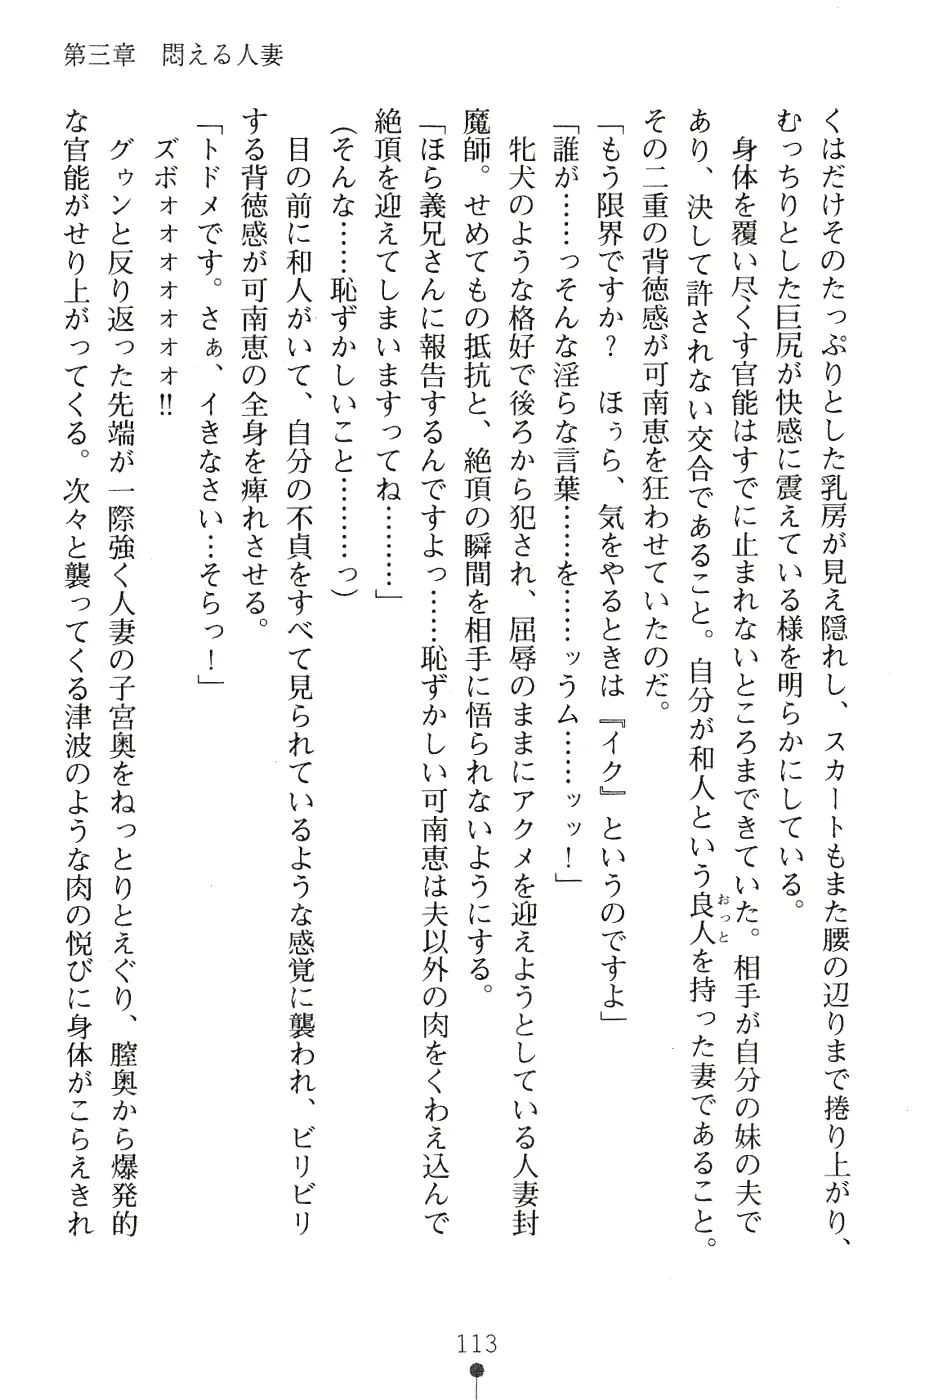 第三章　悶える人妻
くはだけそのたっぷりとした乳房が見え隠れし、スカートもまた腰の辺りまで捲り上がり、
むっちりとした巨尻が快感に震えている様を明らかにしている。
　身体を覆い尽くす官能はすでに止まれないところまできていた。相手が自分の妹の夫で
あり、決して許されない交合であること。自分が和人という良人を持った妻であること。
おっと
その二重の背徳感が可南恵を狂わせていたのだ。
「もう限界ですか？　ほぅら、気をやるときは『イク』というのですよ」
「誰が……っそんな淫らな言葉………を……ッうム……ッッ！」
　牝犬のような格好で後ろから犯され、屈辱のままにアクメを迎えようとしている人妻封
魔師。せめてもの抵抗と、絶頂の瞬間を相手に悟られないようにする。
「ほら義兄さんに報告するんですよっ……恥ずかしい可南恵は夫以外の肉をくわえ込んで
絶頂を迎えてしまいますってね………」
（そんな……恥ずかしいこと………っ）
　目の前に和人がいて、自分の不貞をすべて見られているような感覚に襲われ、ビリビリ
する背徳感が可南恵の全身を痺れさせる。
「トドメです。さぁ、イきなさい…そらっ！」
　ズボォォォォォォ!!
　グゥンと反り返った先端が一際強く人妻の子宮奥をねっとりとえぐり、膣奥から爆発的
な官能がせり上がってくる。次々と襲ってくる津波のような肉の悦びに身体がこらえきれ
113